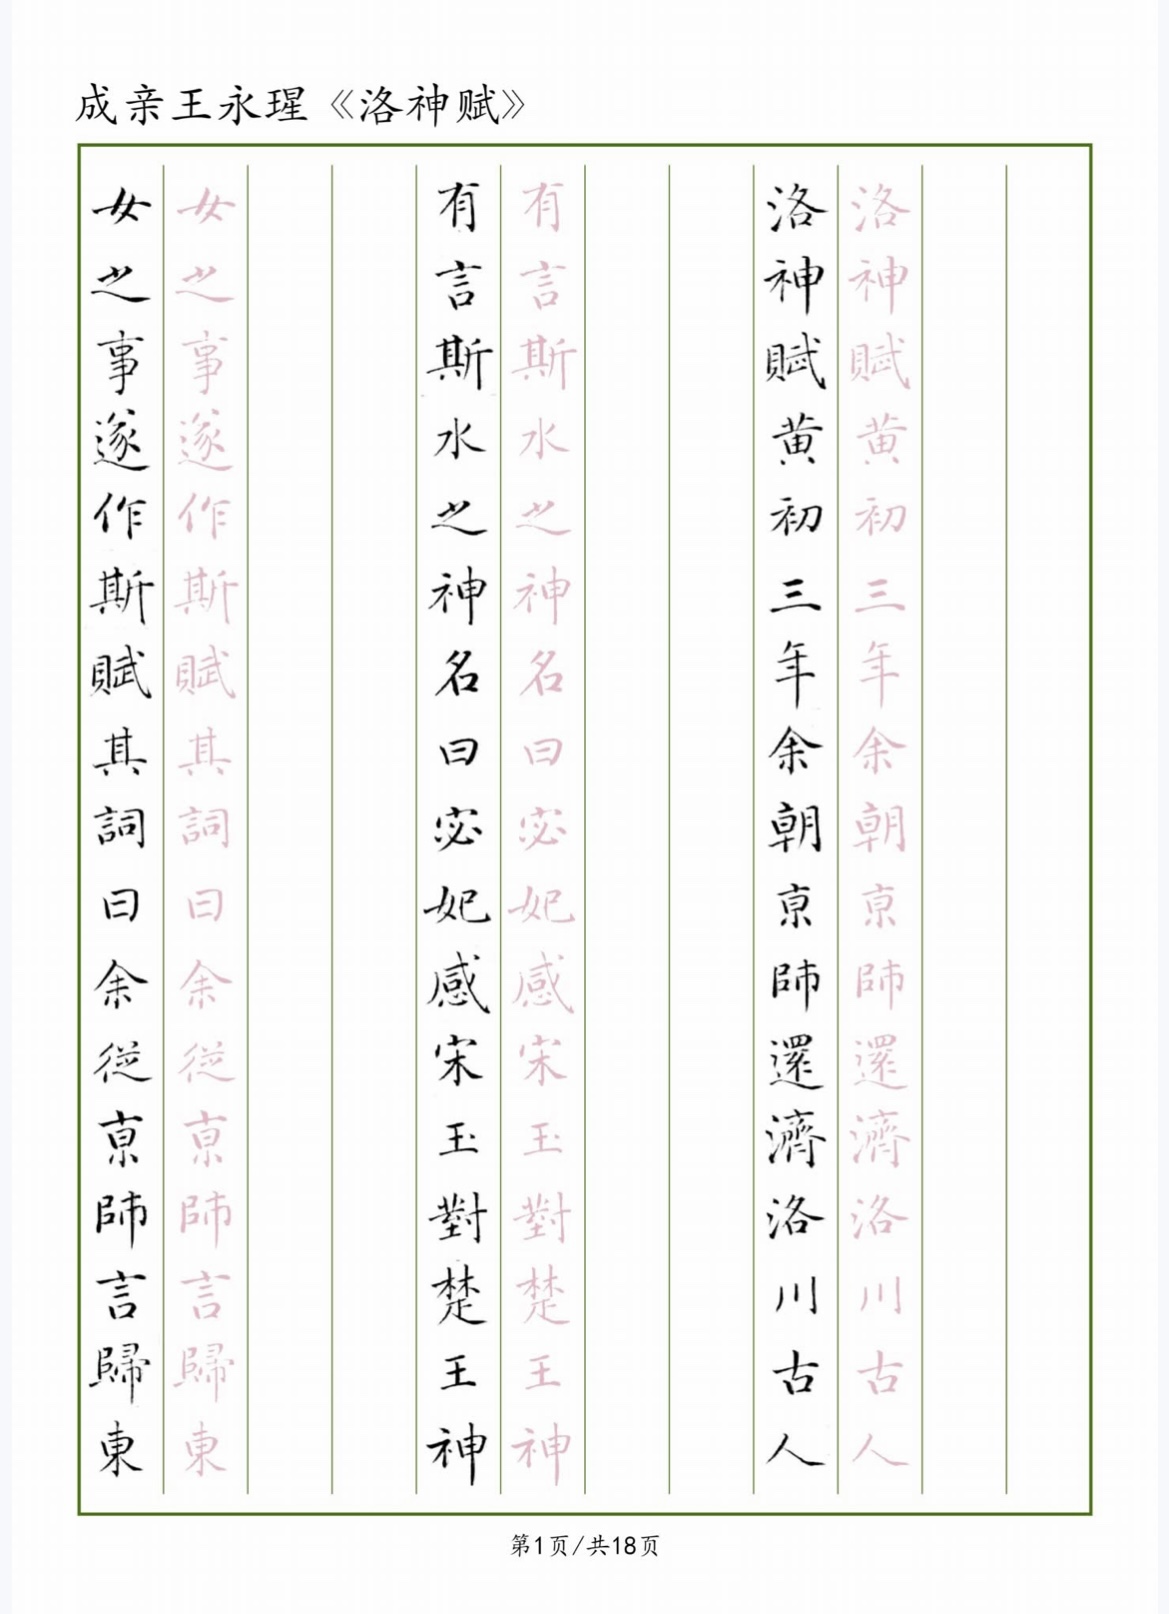 成亲王永瑆《洛神赋》
洛神賦黄初三年余朝京師還濟洛川古人
洛神賦黄初三年余朝京師還濟洛川古人
有言斯水之神名曰宓妃感宋玉對楚王神
有言斯水之神名曰宓妃感宋玉對楚王神
女之事遂作斯賦其詞曰余從京師言歸東
女之事遂作斯賦其詞曰余從京師言歸東
第1页/共18页